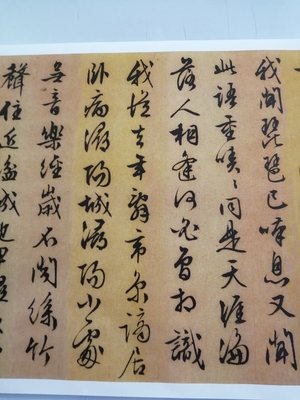 我聞琵琶已嘆息又聞
此語重唧〻同是天涯淪
落人相逢何必曾相識
我從去年辭帝京謫居
臥病潯陽城潯陽小處
無音樂終歲不聞絲竹
聲住近湓城地